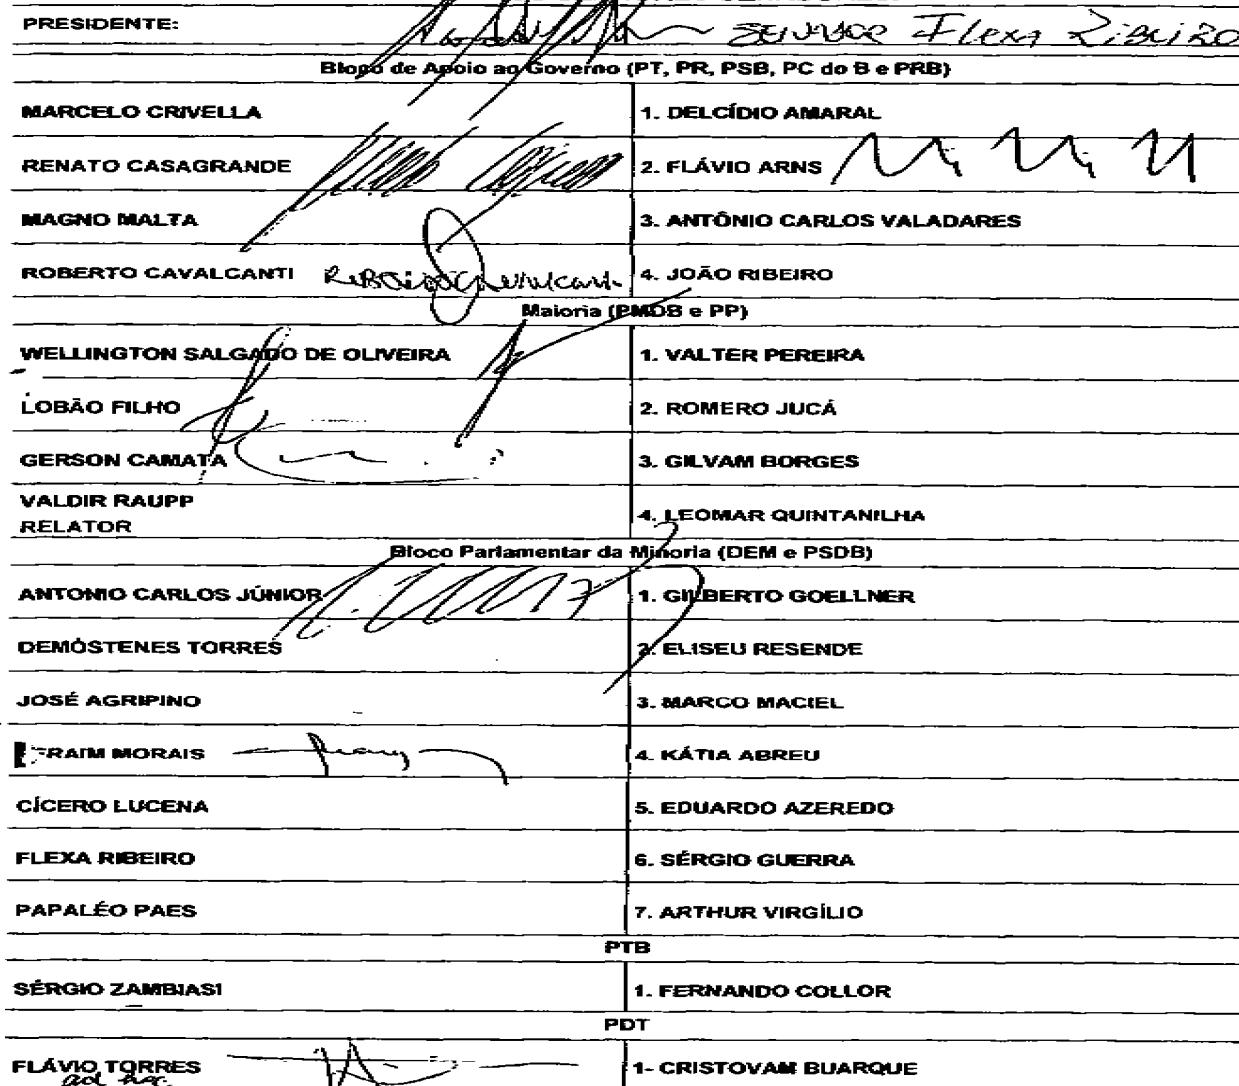 PRESIDENTE: Flexa Ribeiro
Bloco de Apoio ao Governo (PT, PR, PSB, PC do B e PRB)
MARCELO CRIVELLA 1. DELCÍDIO AMARAL
RENATO CASAGRANDE 2. FLÁVIO ARNS
MAGNO MALTA 3. ANTÔNIO CARLOS VALADARES
ROBERTO CAVALCANTI 4. JOÃO RIBEIRO
Maioria (PMDB e PP)
WELLINGTON SALGADO DE OLIVEIRA 1. VALTER PEREIRA
LOBÃO FILHO 2. ROMERO JUCÁ
GERSON CAMATA 3. GILVAM BORGES
VALDIR RAUPP
RELATOR 4. LEOMAR QUINTANILHA
Bloco Parlamentar da Minoria (DEM e PSDB)
ANTONIO CARLOS JÚNIOR 1. GILBERTO GOELLNER
DEMÓSTENES TORRES 2. ELISEU RESENDE
JOSÉ AGRIPINO 3. MARCO MACIEL
EFRAIM MORAIS 4. KÁTIA ABREU
CÍCERO LUCENA 5. EDUARDO AZEREDO
FLEXA RIBEIRO 6. SÉRGIO GUERRA
PAPALÉO PAES 7. ARTHUR VIRGÍLIO
PTB
SÉRGIO ZAMBIASI 1. FERNANDO COLLOR
PDT
FLÁVIO TORRES 1- CRISTOVAM BUARQUE
ad hoc